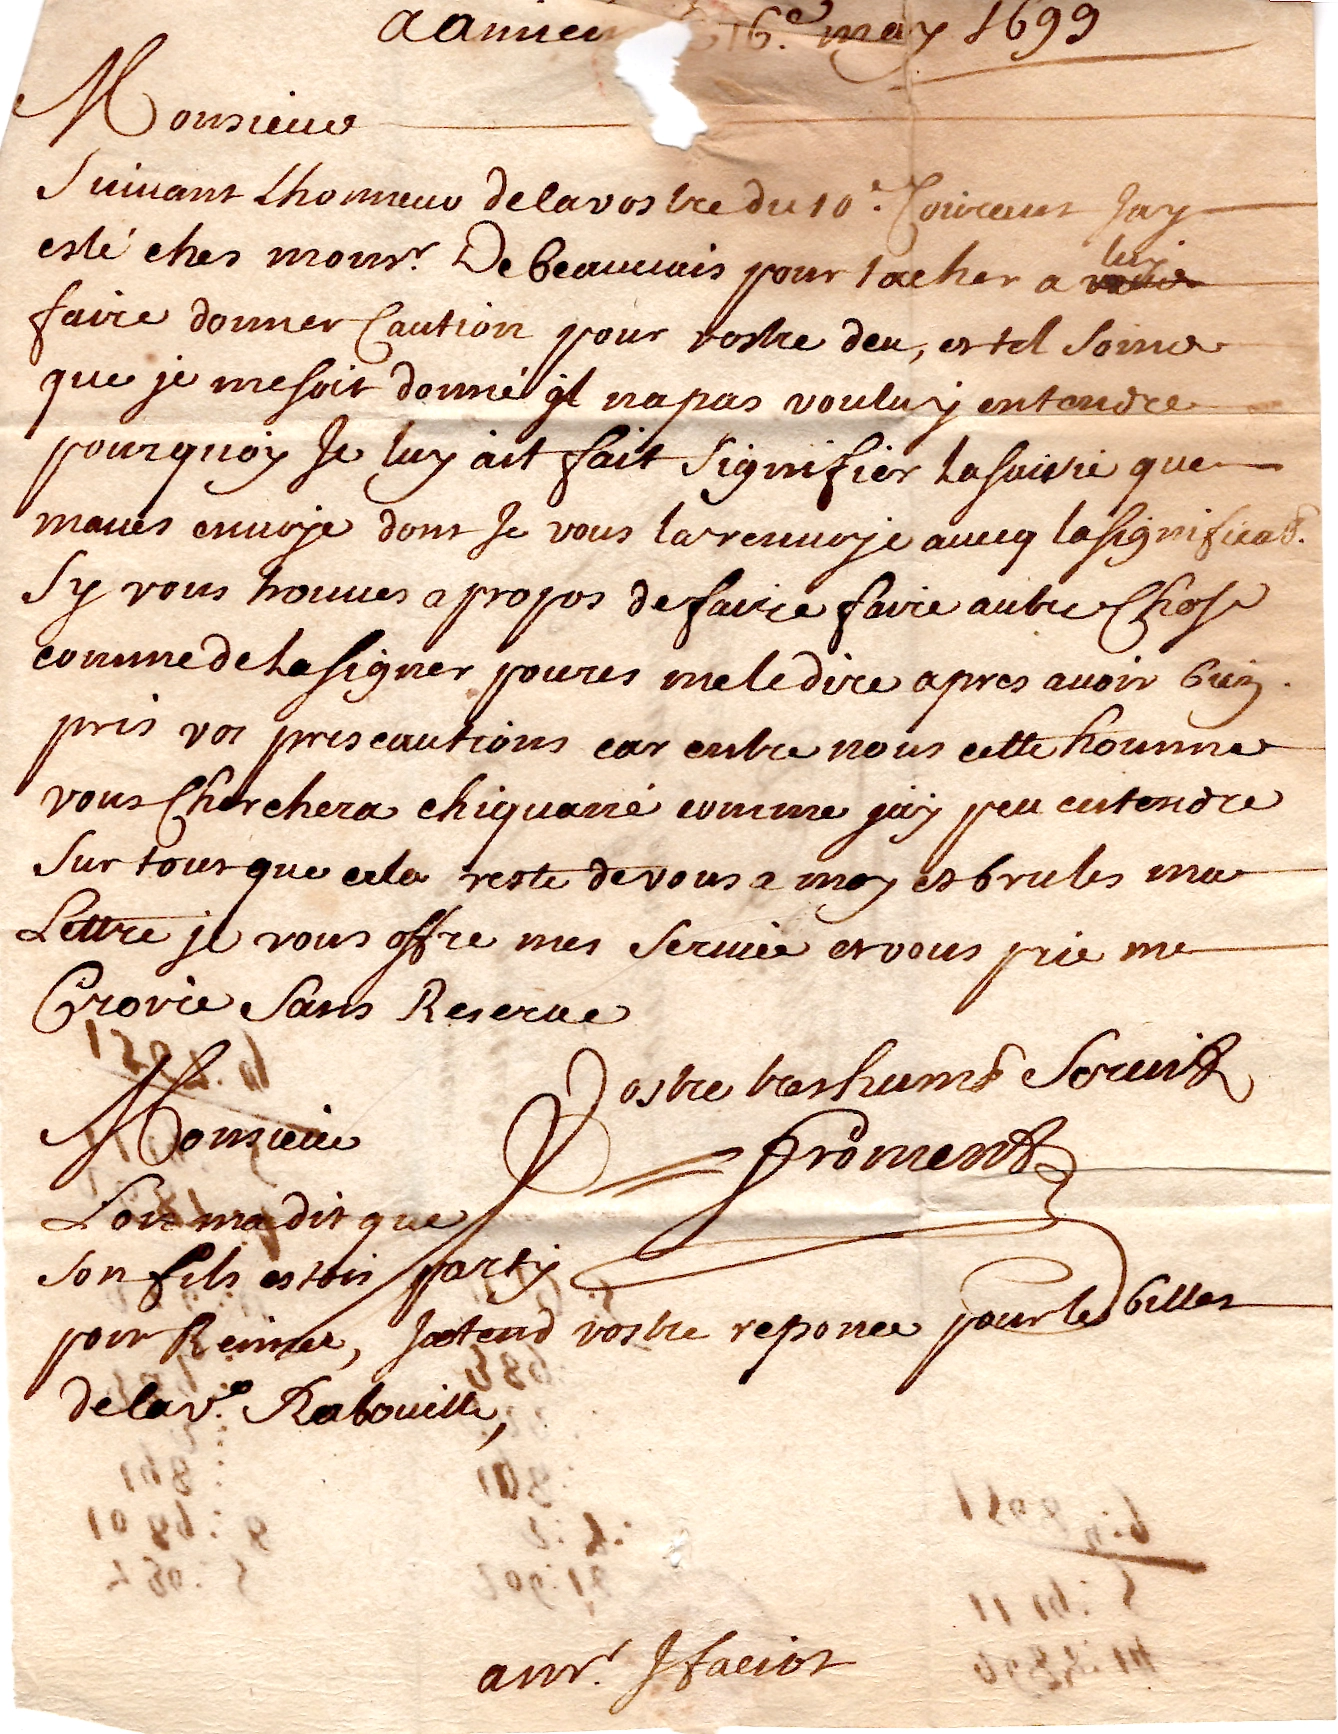 a amien 16e may 1699
Monsieur
Suivant Lhonneur delavostre du 10e. Courant Jay
esté ches monsr. De beauvais pour tacher a luy
faire donner Caution pour vostre deu, et tel Soine
que je mesoit donné jl napas voulu y entendre
pourquoy Je luy ait fait Signifier Lasaisie que
maves envoje dont Je vous la renvoje avecq lasignificaon.
Sy vous trouves apropos de faire faire autre Chose
comme de Lasigner poures meledire apres avoir bien
pris vos prescautions car entre nous cette homme
vous Cherchera chiquané comme jay peu entendre
Sur tout que cela reste de vous a moy et brules ma
Lettre je vous offre mes Service et vous prie me
Croire Sans Reserve
Monsieur
Vostre treshumb Servit
Froment
Lon ma dit que
son fils estoit party
pour Reims, Jatend vostre reponce pour les billes
delave. Rabouille,
a mr. Jfaciot